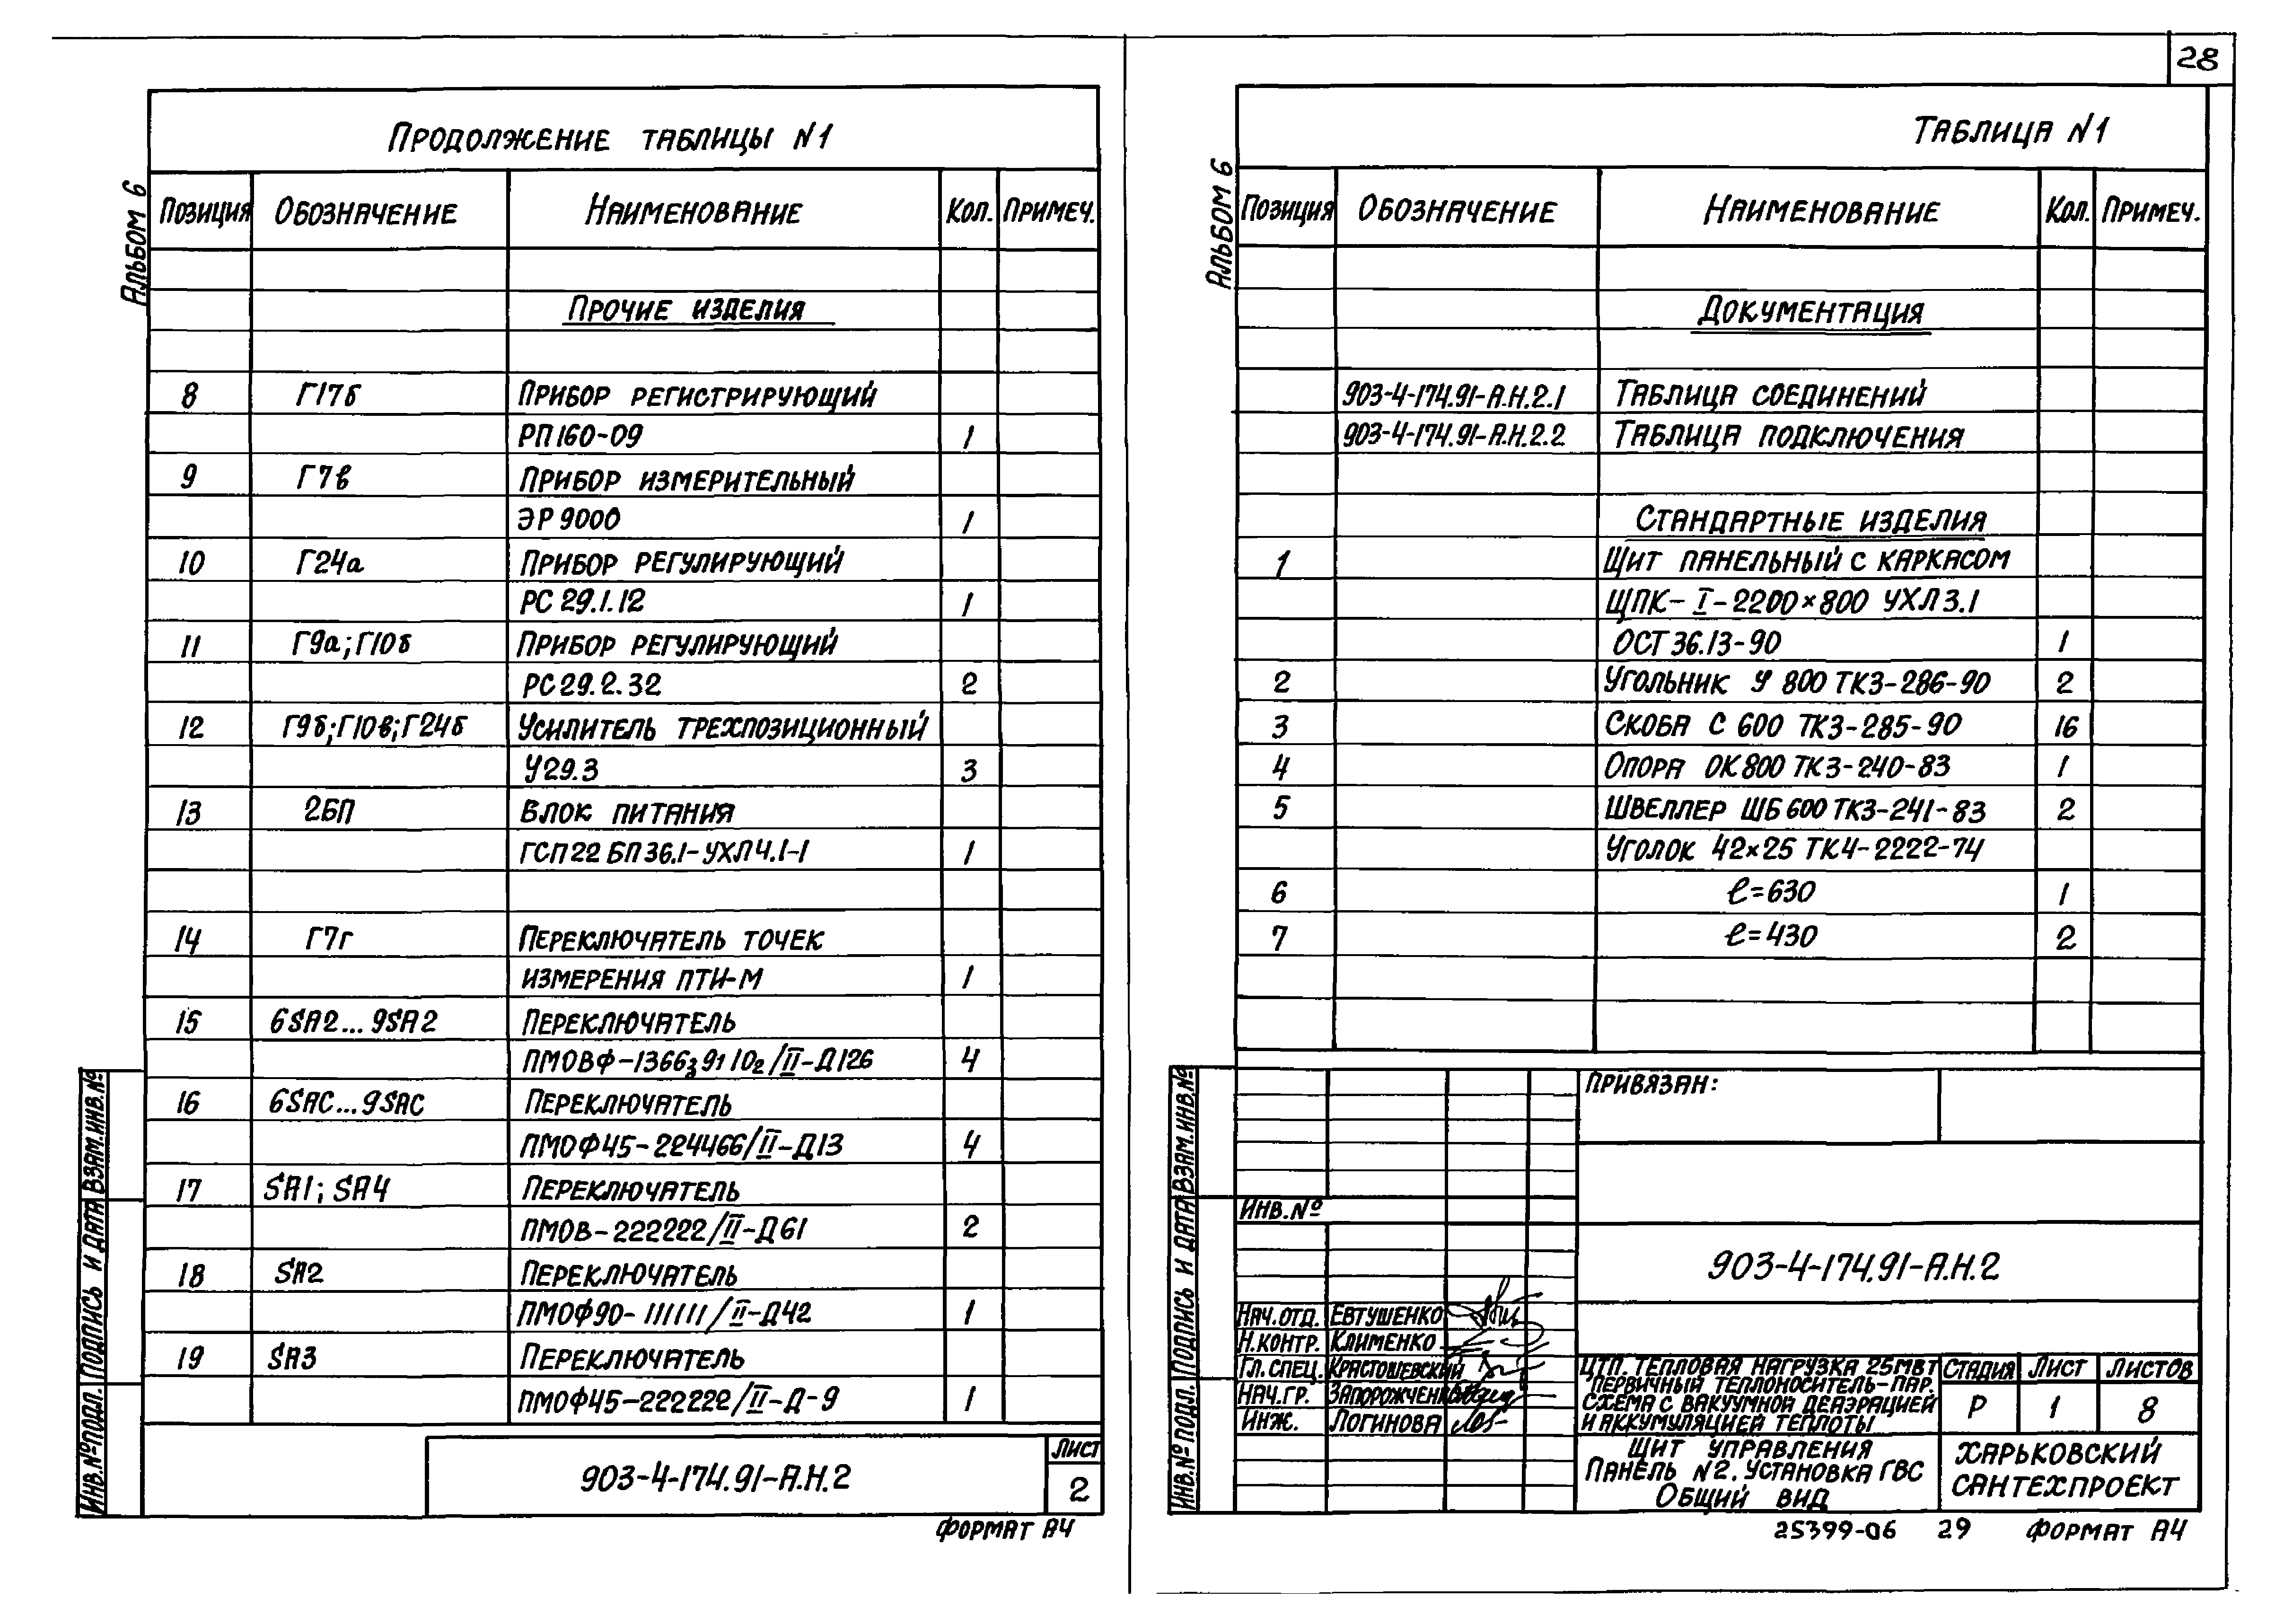 28
Продолжение таблицы N1
Альбом 6
Позиция Обозначение Наименование Кол. Примеч.
Прочие изделия
8 Г17б Прибор регистрирующий
РП160-09 1
9 Г7в Прибор измерительный
ЭР 9000 1
10 Г24а Прибор регулирующий
РС 29.1.12 1
11 Г9а; Г10б Прибор регулирующий
РС 29.2.32 2
12 Г9б; Г10в; Г24б Усилитель трехпозиционный
У29.3 3
13 2БП Блок питания
ГСП22 БП36.1-УХЛ4.1-1 1
14 Г7г Переключатель точек
измерения ПТИ-М 1
15 6SA2...9SA2 Переключатель
ПМОВФ-1366з9110г/II-Д126 4
16 6SAC...9SAC Переключатель
ПМОФ45-224466/II-Д13 4
17 SA1; SA4 Переключатель
ПМОВ-222222/II-Д61 2
18 SA2 Переключатель
ПМОФ90-111111/II-Д42 1
19 SA3 Переключатель
ПМОФ45-222222/II-Д-9 1
Инв.№ подл. Подпись и дата Взам.инв.№
903-4-174.91-А.Н.2
Лист
2
Формат А4
Таблица N1
Альбом 6
Позиция Обозначение Наименование Кол. Примеч.
Документация
903-4-174.91-А.Н.2.1 Таблица соединений
903-4-174.91-А.Н.2.2 Таблица подключения
Стандартные изделия
1 Щит панельный с каркасом
ЩПК-I-2200×800 УХЛ3.1
ОСТ 36.13-90 1
2 Угольник У 800 ТК3-286-90 2
3 Скоба С 600 ТК3-285-90 16
4 Опора ОК800 ТК3-240-83 1
5 Швеллер ШБ600 ТК3-241-83 2
Уголок 42×25 ТК4-2222-74
6 ℓ=630 1
7 ℓ=430 2
Инв.№ подл. Подпись и дата Взам.инв.№
Привязан:
Инв.№
903-4-174.91-А.Н.2
Нач.отд. Евтушенко
Н.контр. Клименко
Гл.спец. Красташевский
Нач.гр. Запорожченко
Инж. Логинова
ЦТП. Тепловая нагрузка 25МВт
Первичный теплоноситель-пар.
Схема с вакуумной деаэрацией
и аккумуляцией теплоты
Стадия Лист Листов
Р 1 8
Щит управления
Панель N2. Установка ГВС
Общий вид
Харьковский
Сантехпроект
25399-06 29 Формат А4